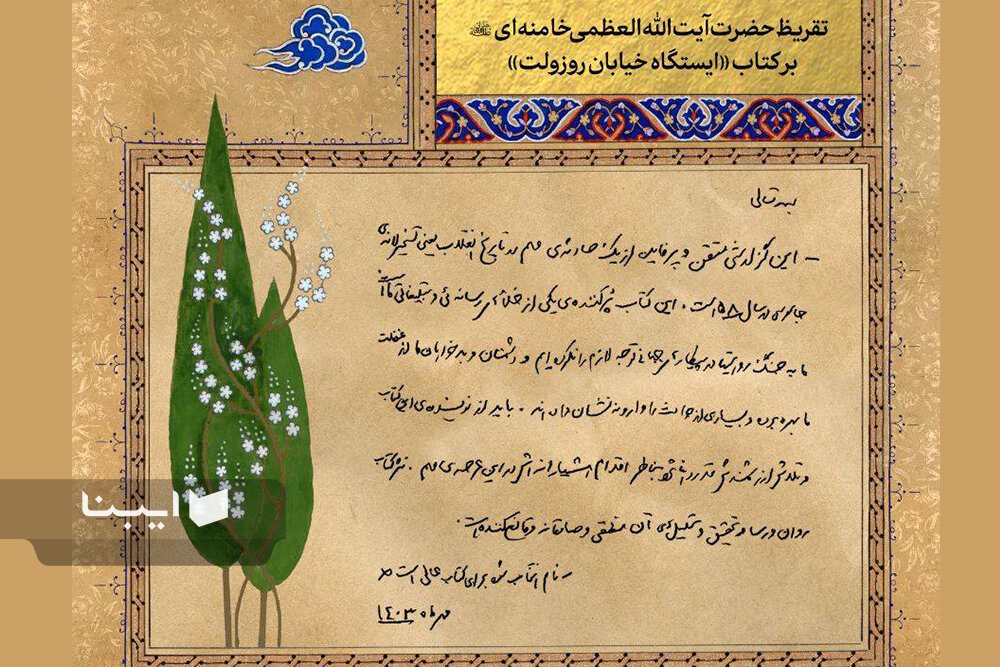 تقریظ حضرت آیت الله العظمی خامنه‌ای
بر کتاب «ایستگاه خیابان روزولت»
بسمه تعالی
- این گزارشی متقن و پرفایده از یک حادثه‌ی مهم در تاریخ انقلاب یعنی تسخیر لانه‌ی
جاسوسی در سال ۵۸ است. این کتاب پُرکننده‌ی یکی از خلأهای رسانه‌ئی و تبلیغاتی ماست
ما به جنگ روایتها در پیکارهای جهانی توجه لازم را نکرده‌ایم و دشمنان و بدخواهان ما از غفلت
ما بهره برده و بسیاری از حوادث را وارونه نشان داده‌اند. باید از نویسنده‌ی این کتاب
و تلاش ارزشمندش قدردانی شود بخاطر اقدام هشیارانه‌اش در این عرصه‌ی مهم. نثر کتاب
روان و رسا و تحقیق و تحلیلهای آن منطقی و صادقانه و قانع‌کننده است.
- نام انتخاب شده برای کتاب عالی است
مهرماه ۱۴۰۳
ایبنا